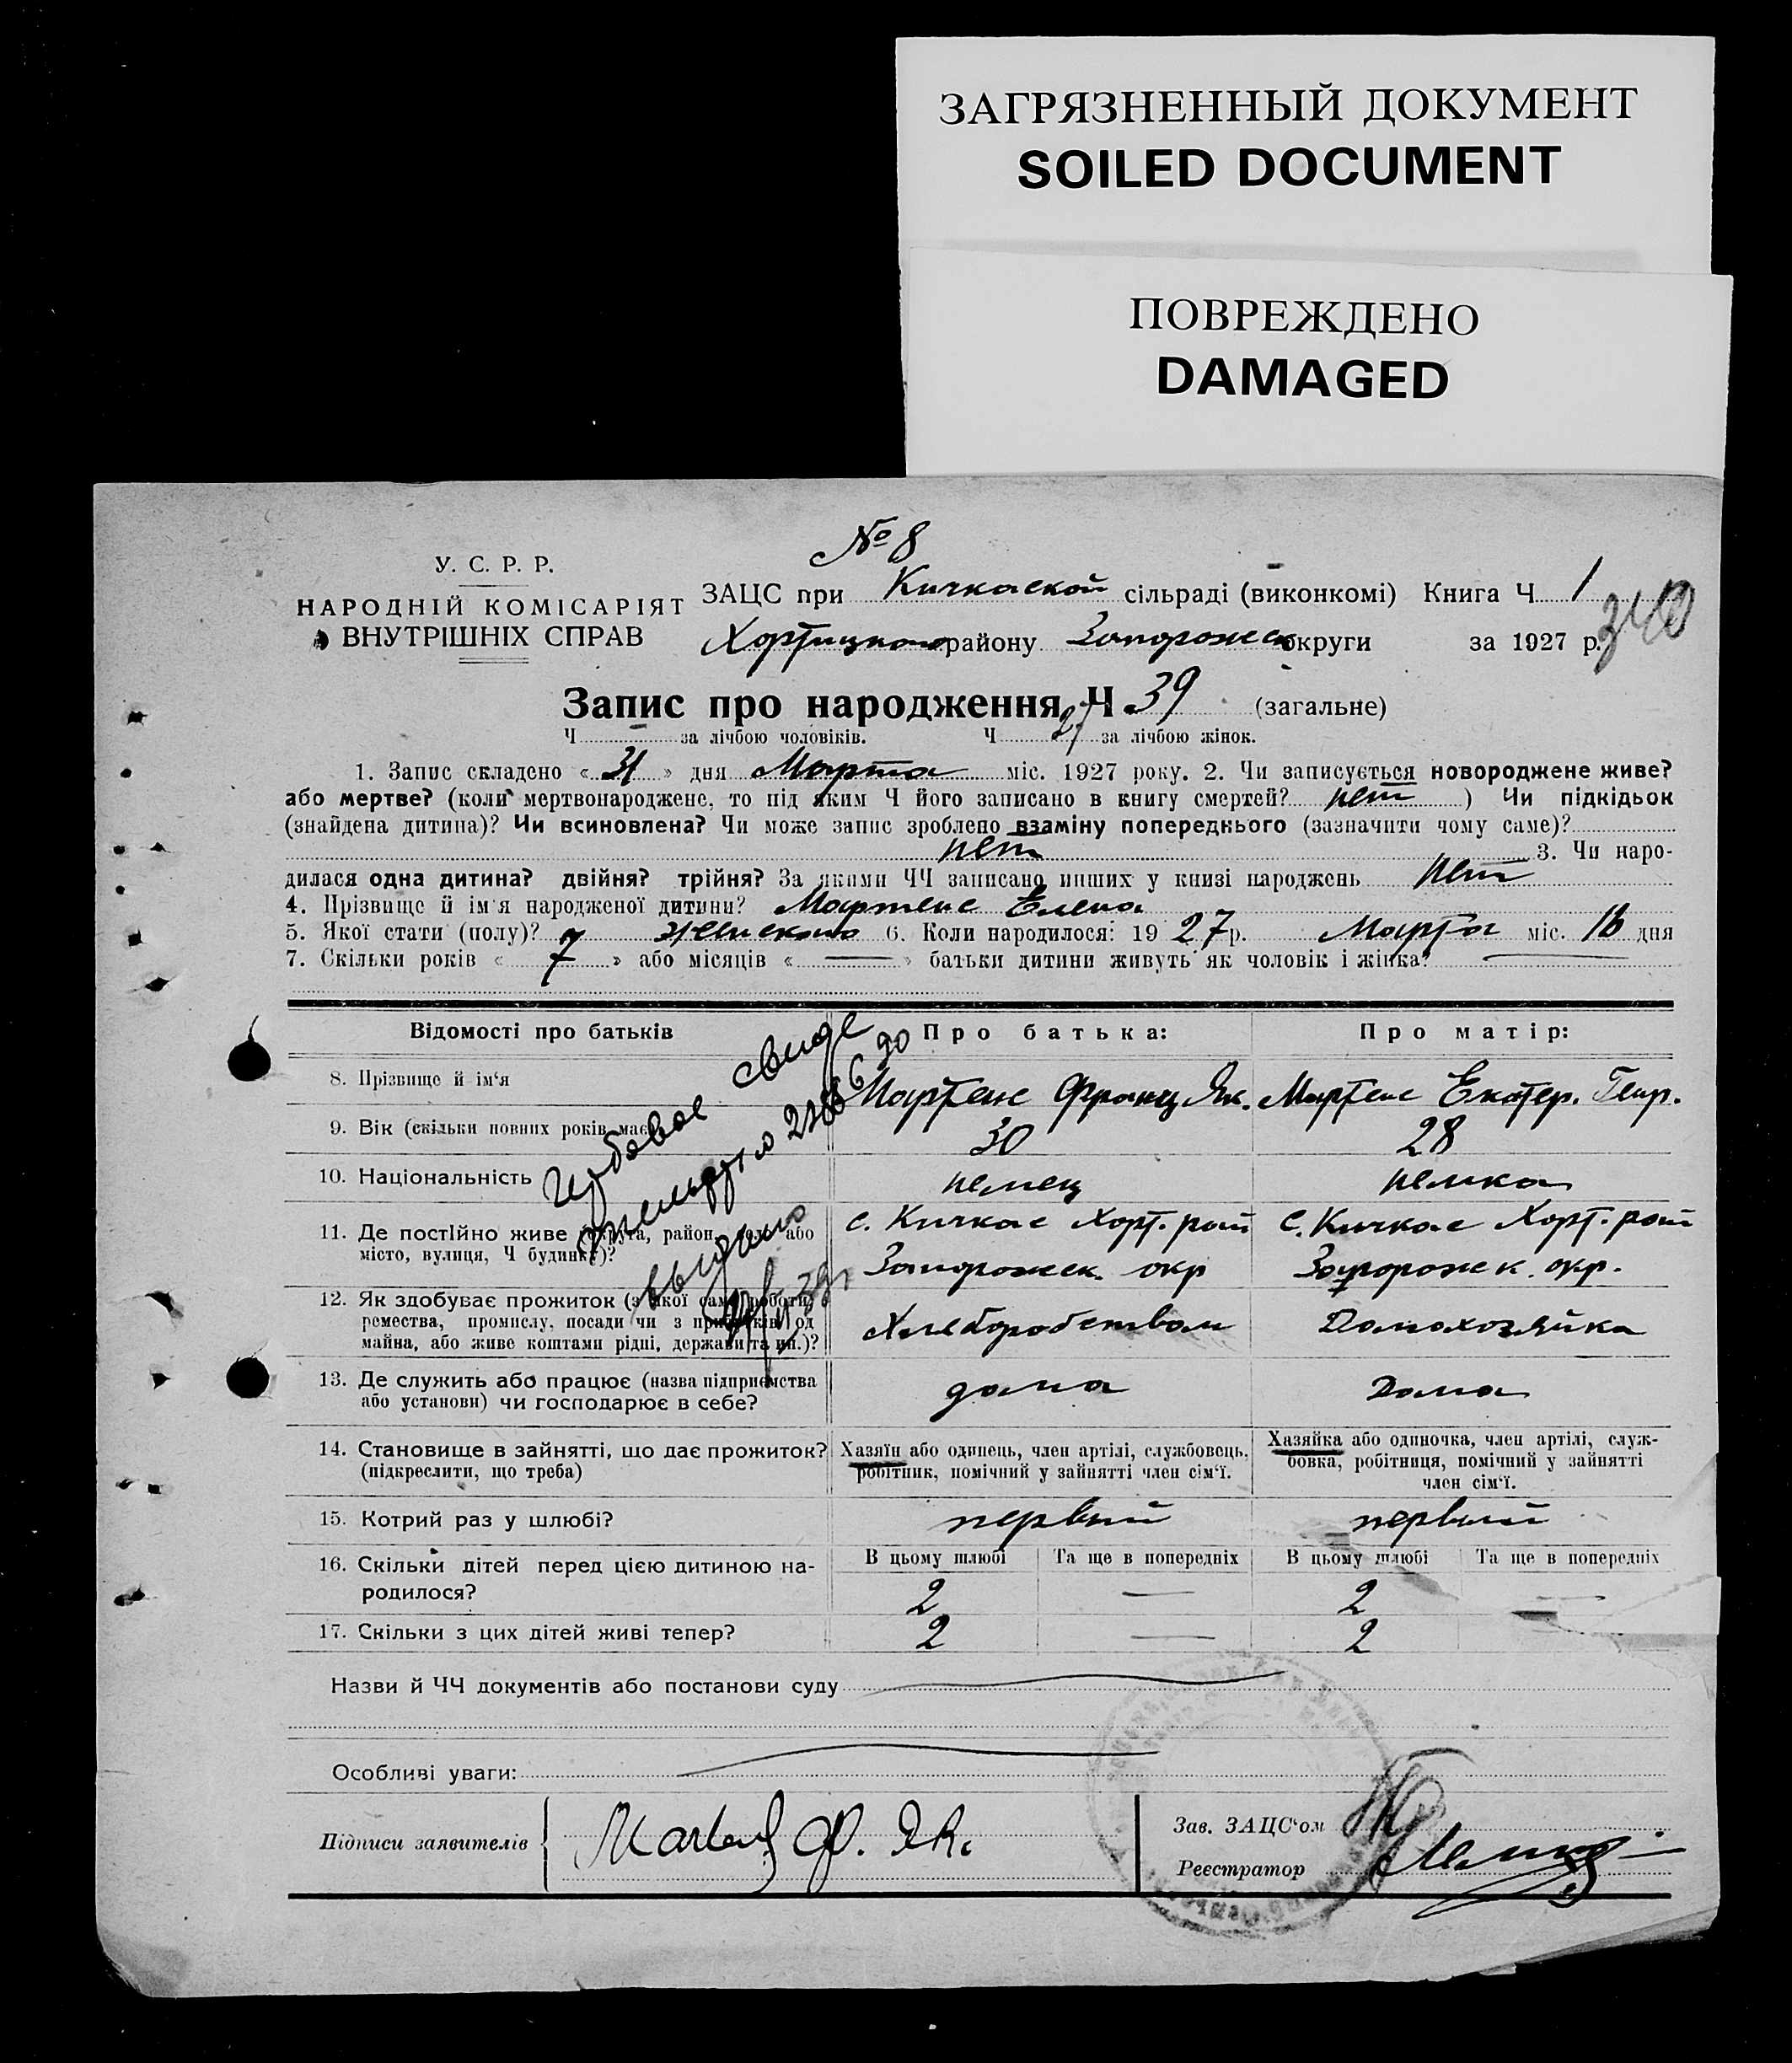 ЗАГРЯЗНЕННЫЙ ДОКУМЕНТ
SOILED DOCUMENT
ПОВРЕЖДЕНО
DAMAGED
№ 8
У. С. Р. Р.
НАРОДНІЙ КОМІСАРІЯТ
ВНУТРІШНІХ СПРАВ
ЗАЦС при Кичкаской сільраді (виконкомі) Книга Ч. 1
340
Хортицкого району Запорожск округи за 1927 р.
Запис про народження Ч. 39 (загальне)
Ч за лічбою чоловіків. Ч 27 за лічбою жінок.
1. Запис складено « 31 » дня Марта міс. 1927 року. 2. Чи записується новороджене живе?
або мертве? (коли мертвонароджене, то під яким Ч його записано в книгу смертей? нет ) Чи підкідьок
(знайдена дитина)? Чи всиновлена? Чи може запис зроблено взаміну попереднього (зазначити чому саме)?
нет 3. Чи наро-
дилася одна дитина? двійня? трійня? За якими ЧЧ записано инших у книзі народжень нет
4. Прізвище й ім'я народженої дитини? Мартенс Елена
5. Якої стати (полу)? женского 6. Коли народилося: 19 27 р. Марта міс. 16 дня
7. Скільки років « 7 » або місяців « — » батьки дитини живуть як чоловік і жінка? —
Відомості про батьків Про батька: Про матір:
8. Прізвище й ім'я Мартенс Франц Як. Мартенс Екатер. Генр.
9. Вік (скільки повних років має) 30 28
10. Національність немец немка
11. Де постійно живе (округа, район, село або
місто, вулиця, Ч будинку)?
с. Кичкас Хорт. рай
Запорожск. окр
с. Кичкас Хорт. рай
Запорожск. окр.
12. Як здобуває прожиток (з якої саме роботи,
ремества, промислу, посади чи з прибутків од
майна, або живе коштами рідні, держави та ин.)?
Хлеборобством Домохозяйка
13. Де служить або працює (назва підприємства
або установи) чи господарює в себе?
дома Дома
14. Становище в зайнятті, що дає прожиток?
(підкреслити, що треба)
Хазяїн або одинець, член артілі, службовець,
робітник, помічний у зайнятті член сім'ї.
Хазяйка або одиночка, член артілі, служ-
бовка, робітниця, помічний у зайнятті
член сім'ї.
15. Котрий раз у шлюбі? первый первый
16. Скільки дітей перед цією дитиною на-
родилося?
В цьому шлюбі Та ще в попередніх В цьому шлюбі Та ще в попередніх
2 — 2 —
17. Скільки з цих дітей живі тепер? 2 — 2
выдано
Назви й ЧЧ документів або постанови суду
Особливі уваги:
Підписи заявителів Martens Ф. Як.
Зав. ЗАЦС'ом
Реєстратор